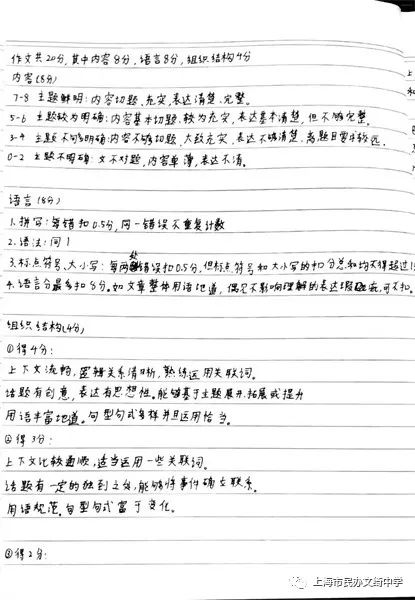 作文共20分,其中内容8分,语言8分,组织结构4分
内容(8分)
7-8 主题鲜明:内容切题、充实,表达清楚、完整。
5-6 主题较为明确:内容基本切题、较为充实,表达基本清楚,但不够完整。
3-4 主题不够明确:内容不够切题、大致充实,表达不够清楚,离题目要求较远。
0-2 主题不明确:文不对题,内容单薄,表达不清。
语言(8分)
1.拼写:每错扣0.5分,同一错误不重复计数
2.语法:同1
3.标点符号、大小写:每两处错误扣0.5分,但标点符号和大小写的扣分总和均不得超过1
4.语言分最多扣8分。如文章整体用语地道,偶见不影响理解的表达瑕疵,可不扣。
组织结构(4分)
①得4分:
上下文流畅,逻辑关系清晰,熟练运用关联词。
话题有创意,表达有思想性。能够基于主题展开、拓展或提升
用语丰富地道。句型句式多样并且运用恰当。
②得3分:
上下文比较通顺,适当运用一些关联词。
话题有一定的独到之处,能够将事件确立联系。
用语规范。句型句式富于变化。
③得2分:
上海市民办文绮中学